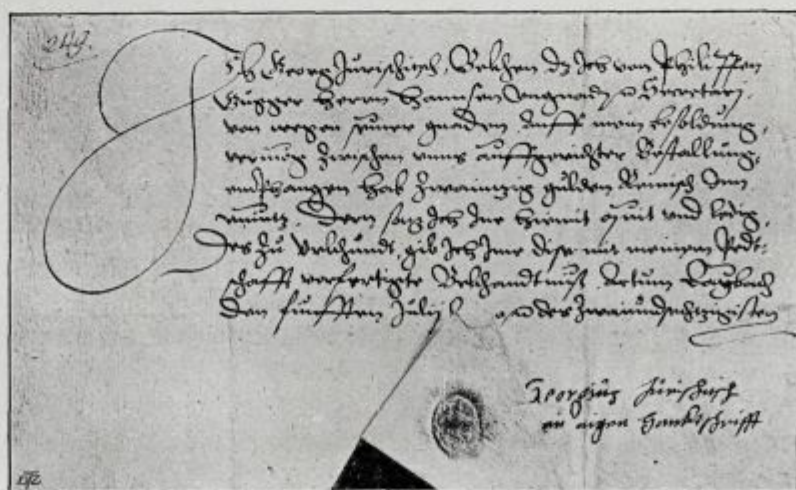 249.
Ich Georg Jurischitsch, Bekhen dz Ich von Philippen
Gugger Herrn Hannsen Ungnaden Secretari,
von wegen seiner gnaden, Auff mein besoldung,
vermög zwischen unns auffgerichter Bestallung,
emphangen hab zwaintzig gulden Reinisch in
müntz, Dern sag Ich Ine hiemit quit und ledig,
Des zu Urkhundt, gib Ich Ime dise mit meinem Pedt-
schafft verfertigte Bekhandtnuß Actum Laybach
den funfften Julij des zwaiundsechtzigisten
Georgius Jurischitsch
m aigen handtschrifft